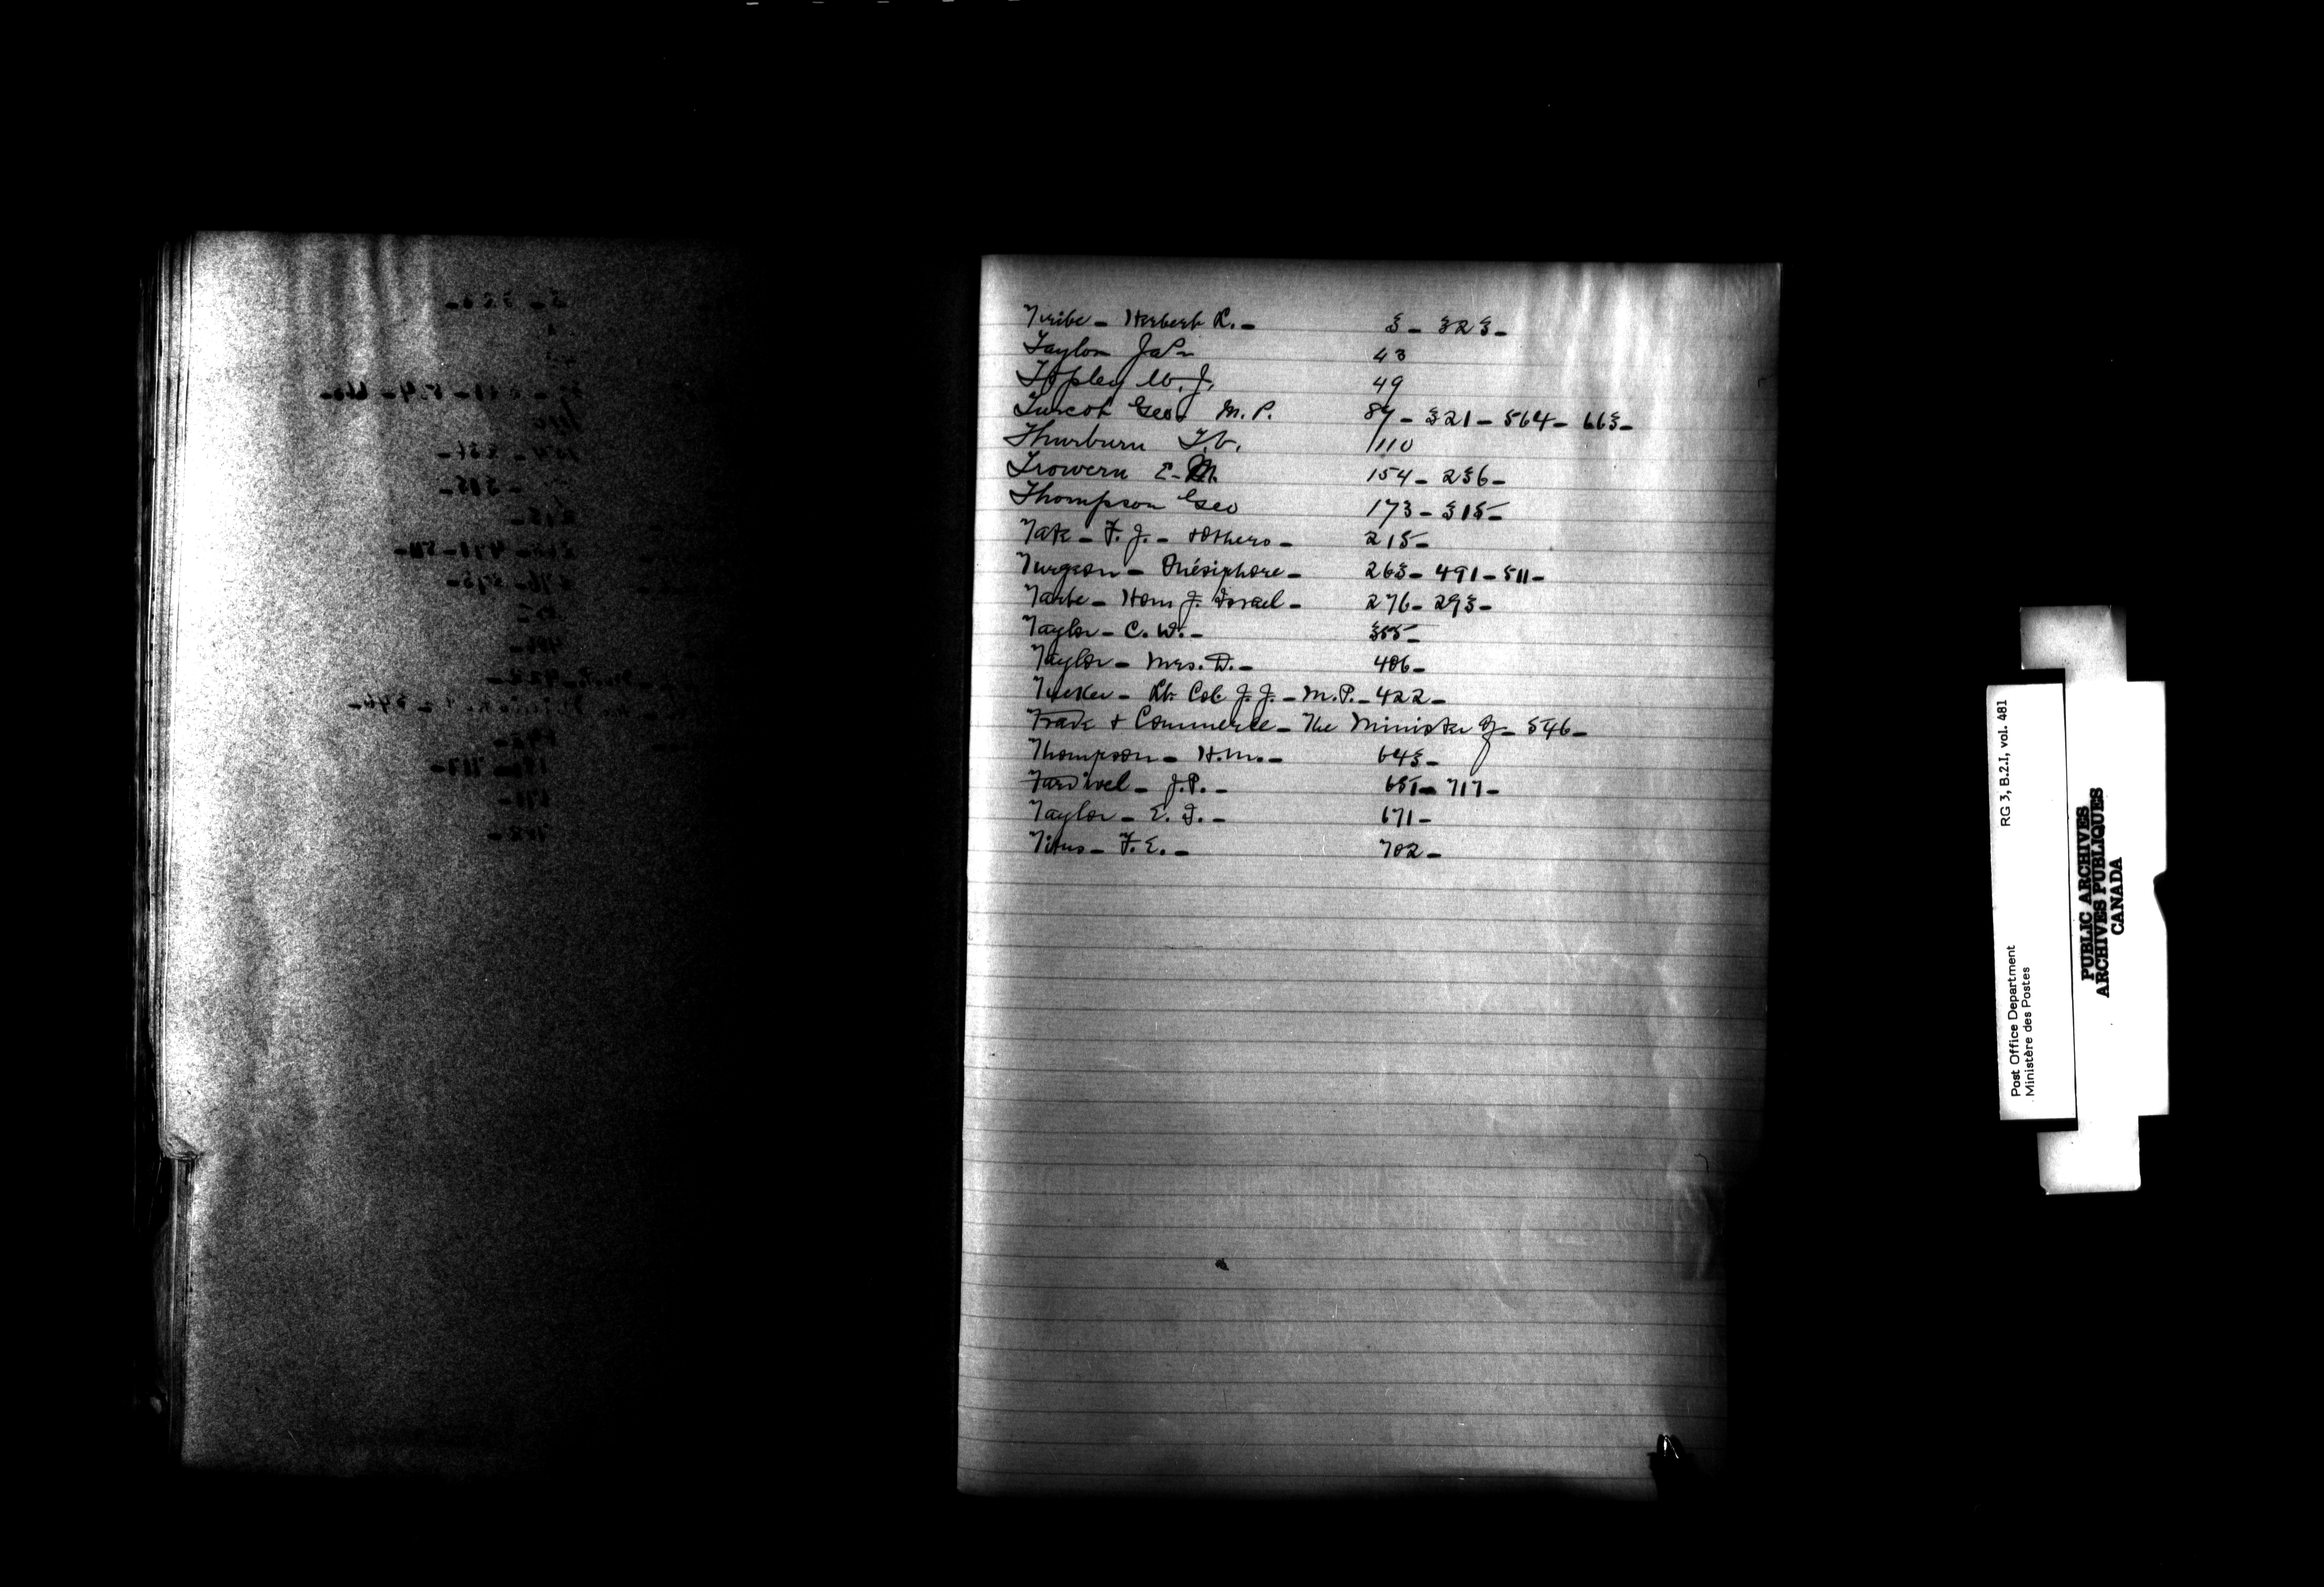 Tribe - Herbert L. - 3 - 323 -
Taylor Jas 43
Topley W. J. 49
Turcot Geo. M. P. 87 - 321 - 564 - 663 -
Thurburn 110
Trowern E. M. 154 - 236 -
Thompson Geo 173 - 315 -
Tate - F. J. - + others - 215 -
Turgeon - Onésiphore - 263 - 491 - 511 -
Tarte - Hon. J. Israel - 276 - 293 -
Taylor - C. W. - 355 -
Taylor - Mrs. D. - 406 -
Tucker - Lt. Col. J. J. - M. P. - 422 -
Trade + Commerce - The Minister of - 546 -
Thompson - H. M. - 643 -
Tardivel - J. P. - 651 - 717 -
Taylor - E. 671 -
Titus - F. E. - 702 -
Post Office Department RG 3, B.2.I, vol. 481
Ministère des Postes
PUBLIC ARCHIVES
ARCHIVES PUBLIQUES
CANADA